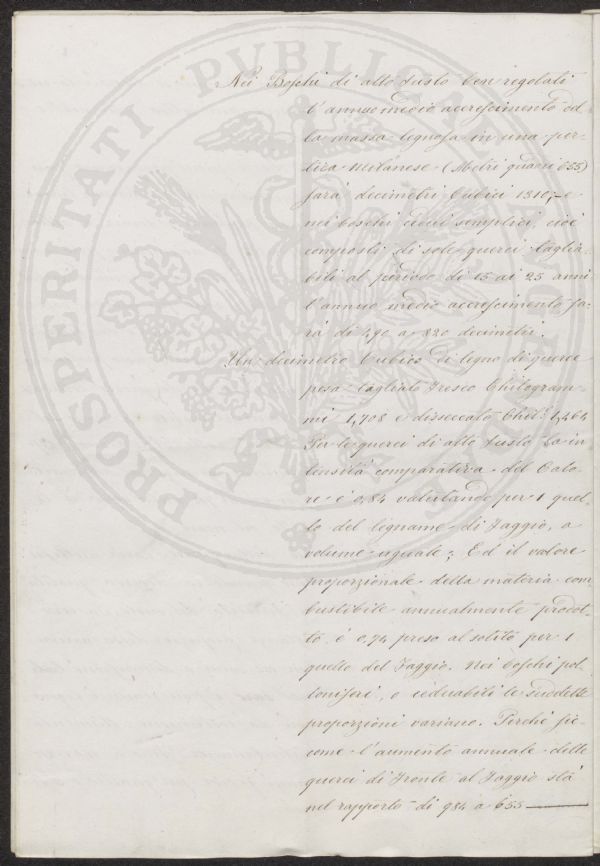 Nei Boschi di alto fusto ben regolati
l'annuo medio accrescimento del
la massa legnosa in una per-
tica Milanese (Metri quadri 655)
sarà decimetri Cubici 1310, e
nei boschi cedui semplici, cioè
composti di sole querci taglia-
bili al periodo di 15 ai 25 anni
l'annuo medio accrescimento sa-
rà di 490 a 820 decimetri.
Un decimetro Cubico di legno di querce
pesa tagliato fresco Chilogram-
mi 1,708 e disseccato Chil.i 1,464
Per le querci di alto fusto la in
tensità comparativa del Calo-
re è 0,84 valutando per 1 quel-
lo del legname di Faggio, a
volume uguale; Ed il valore
proporzionale della materia com
bustibile annualmente prodot-
to è 0,74 preso al solito per 1
quello del Faggio. Nei boschi pol-
loniferi, o ceduabili le suddette
proporzioni variano. Perchè sic-
come l'aumento annuale delle
querci di fronte al Faggio stà
nel rapporto di 984 a 655
PROSPERITATI PVBLICAE